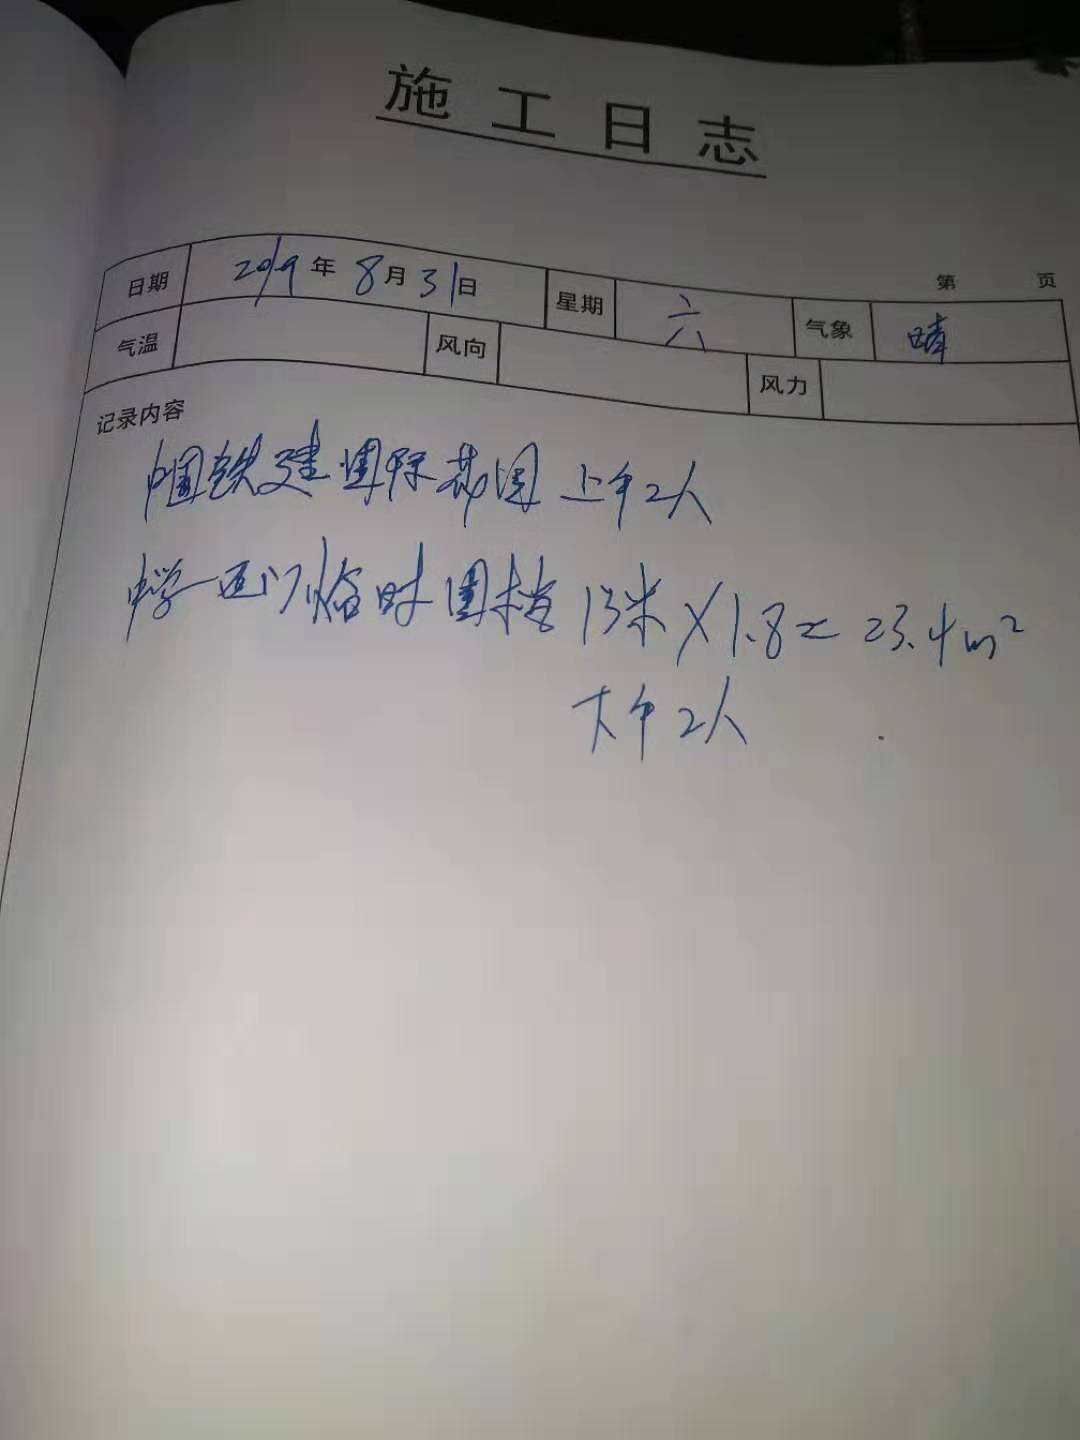 施工日志
第 页
日期 2019年8月31日 星期 六 气象 晴
气温 风向 风力
记录内容
中国铁建国际花园 上午2人
中学西门临时围档 13米×1.8=23.4m²
下午2人